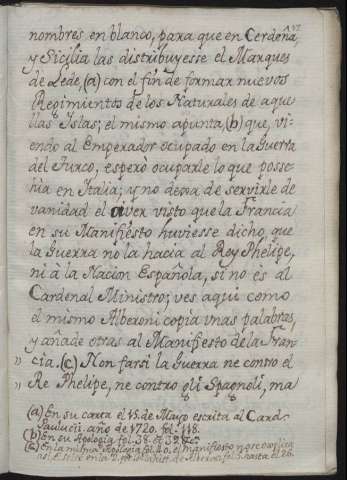 nombres en blanco, para que en Cerdeña,
y Sicilia las distribuyesse el Marques
de Lede, (a) con el fin de formar nuevos
Regimientos de los Naturales de aque
llas Islas; el mismo apunta, (b) que, vi-
endo al Emperador ocupado en la Guerra
del Turco, esperò ocuparle lo que posse-
hia en Italia; y no dexa de servirle de
vanidad el aver visto que la Francia
en su Manifiesto huviesse dicho, que
la Guerra no la hacia al Rey Phelipe,
ni à la Nacion Española, si no es al
Cardenal Ministro; ves aqui como
el mismo Alberoni copia unas palabras,
y añade otras al Manifiesto de la Fran-
" cia. (c) Non farsi la Guerra ne contro el
" Re Phelipe, ne contro gli Spagnoli, ma
(a) En su carta el 15. de Mayo escrita al Card.
Paulucci. año de 1720. fol. 118.
(b) En su Apologia fol. 38. et 39.
(c) En la misma Apologia fol. 40. el manifiesto
fol. 5. hasta el 26.